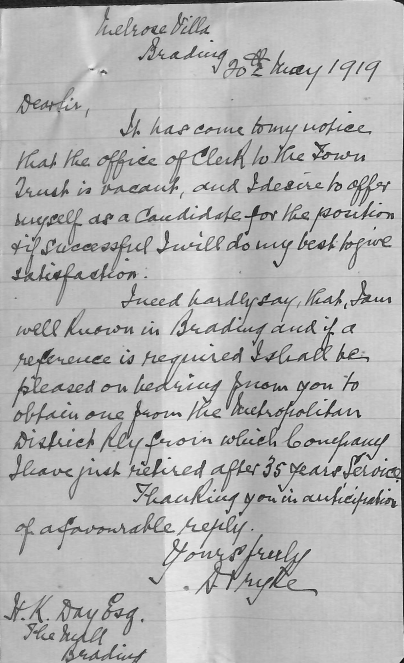 Melrose Villa
Brading
20th May 1919
Dear Sir,
It has come to my notice
that the office of Clerk to the Town
Trust is vacant, and I desire to offer
myself as a Candidate for the position
& if Successful I will do my best to give
satisfaction.
I need hardly say, that, I am
well known in Brading and if a
reference is required I shall be
pleased on hearing from you to
obtain one from the Metropolitan
District Rly from which Company
I have just retired after 35 years Service.
Thanking you in anticipation
of a favourable reply.
Yours truly
D Pryke
H. K. Day Esq.
The Mall
Brading